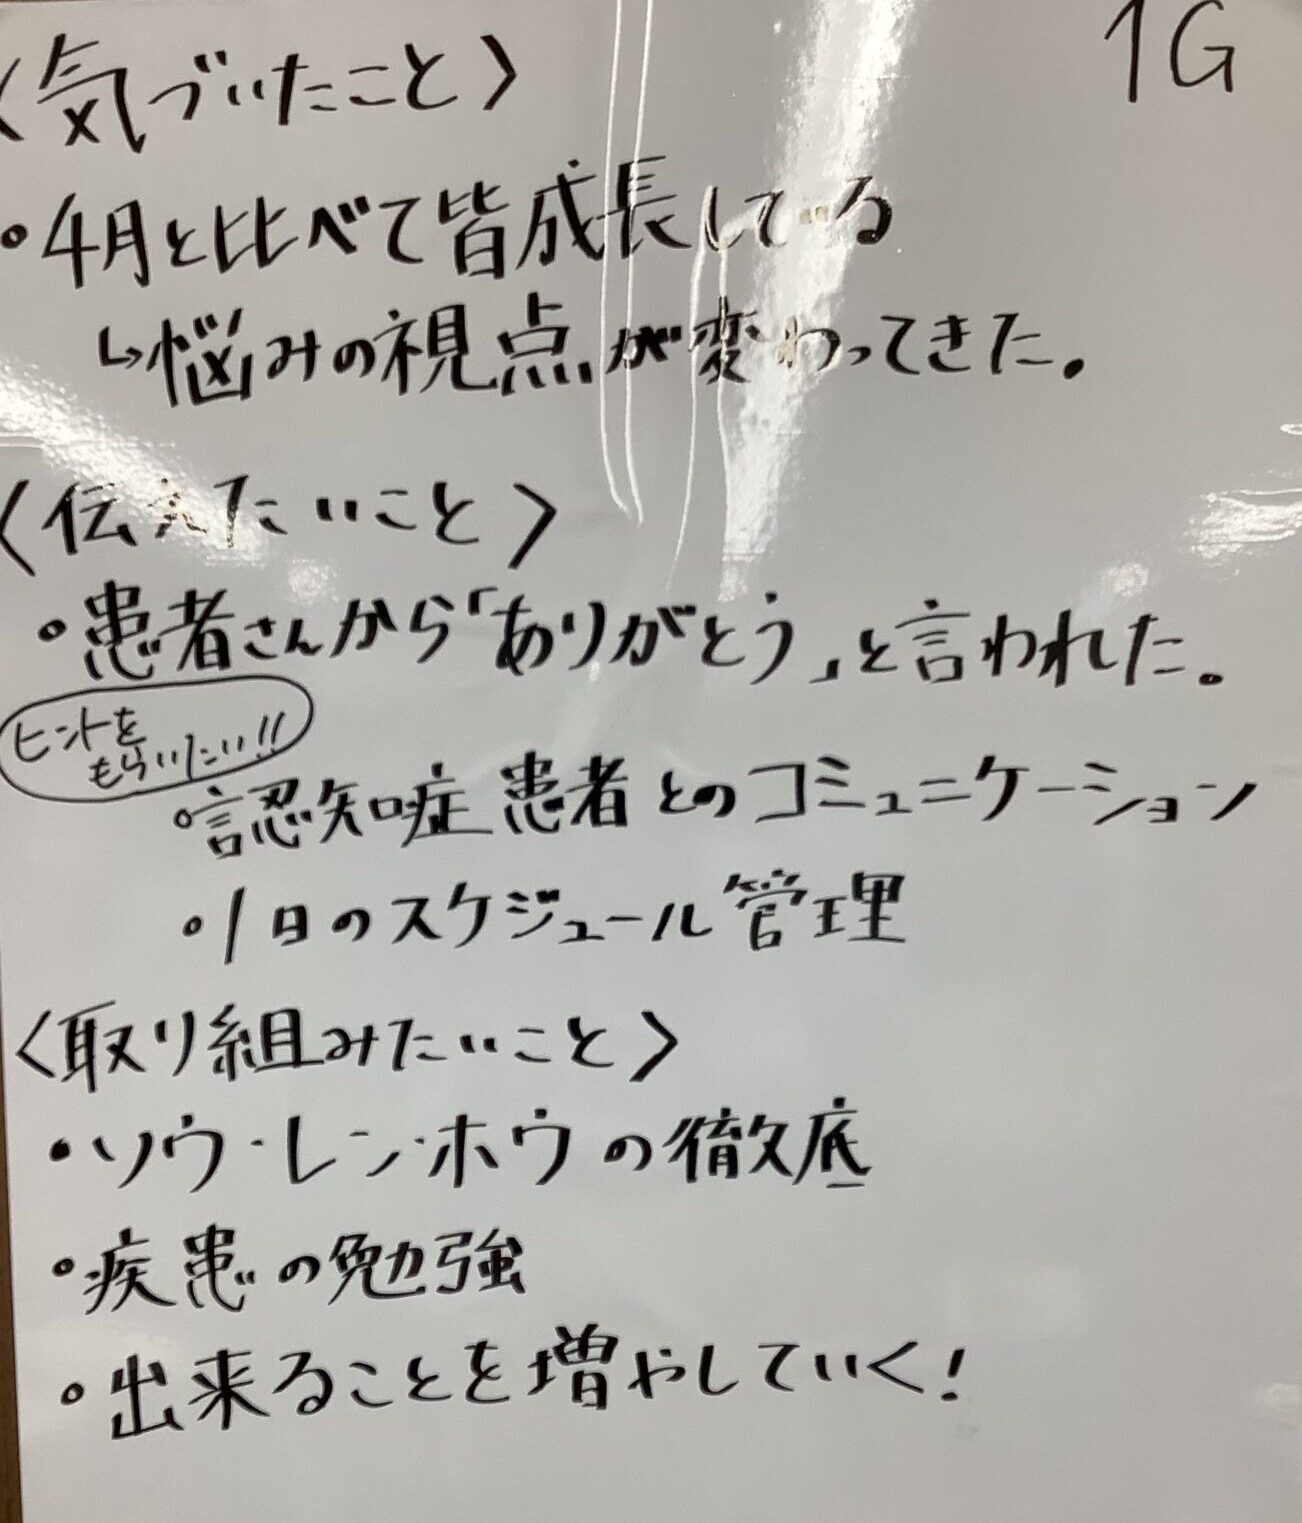 1G
〈気づいたこと〉
・4月と比べて皆成長している
↳悩みの視点が変わってきた。
〈伝えたいこと〉
・患者さんから「ありがとう」と言われた。
ヒントを
もらいたい!!
・認知症患者とのコミュニケーション
・1日のスケジュール管理
〈取り組みたいこと〉
・ソウ・レン・ホウの徹底
・疾患の勉強
・出来ることを増やしていく!